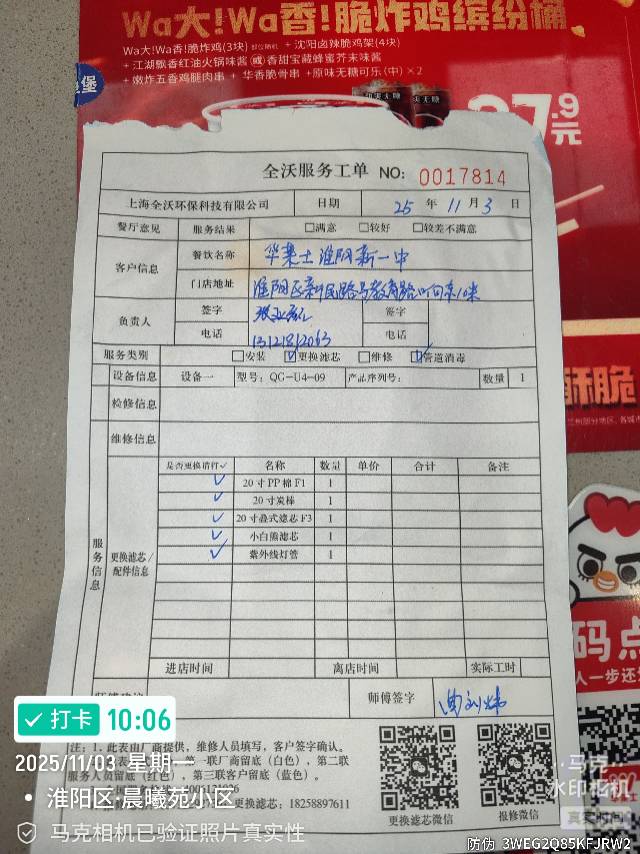 Wa大!Wa香!脆炸鸡缤纷桶
Wa大!Wa香!脆炸鸡(3块) 部位随机 + 沈阳卤辣脆鸡架(4块)
+ 江湖飘香红油火锅味酱 或 香甜宝藏蜂蜜芥末味酱
+ 嫩炸五香鸡腿肉串 + 华香脆骨串 +原味无糖可乐(中)×2
堡
.9
元
全沃服务工单 NO: 0017814
上海全沃环保科技有限公司 日期 25 年 11 月 3 日
餐厅意见 服务结果 □满意 □较好 □较差不满意
客户信息 餐饮名称 华莱士淮阴新一中
门店地址 淮阴区新民路与教育路
负责人 签字 签字
电话 13121812063 电话
服务类别 □安装 ☑更换滤芯 □维修 ☑管道消毒
设备信息 设备一 型号:QG-U4-09 产品序列号: 数量 1
检修信息
维修信息
服务信息
更换滤芯/配件信息
是否更换请打✓ 名称 数量 单价 合计 备注
✓ 20寸PP棉F1 1
✓ 20寸炭棒 1
✓ 20寸叠式滤芯F3 1
✓ 小白熊滤芯 1
✓ 紫外线灯管 1
进店时间 离店时间 实际工时
师傅签字
注:1、此表由厂商提供,维修人员填写,客户签字确认。
第一联厂商留底(白色),第二联
服务人员留底(红色),第三联客户留底(蓝色)。
更换滤芯:18258897611
更换滤芯微信 报修微信
酥脆
码点
一步还
打卡 10:06
2025/11/03 星期一
淮阴区·晨曦苑小区
马克相机已验证照片真实性
马克
水印相机
真实时间
防伪 3WEG2Q85KFJRW2